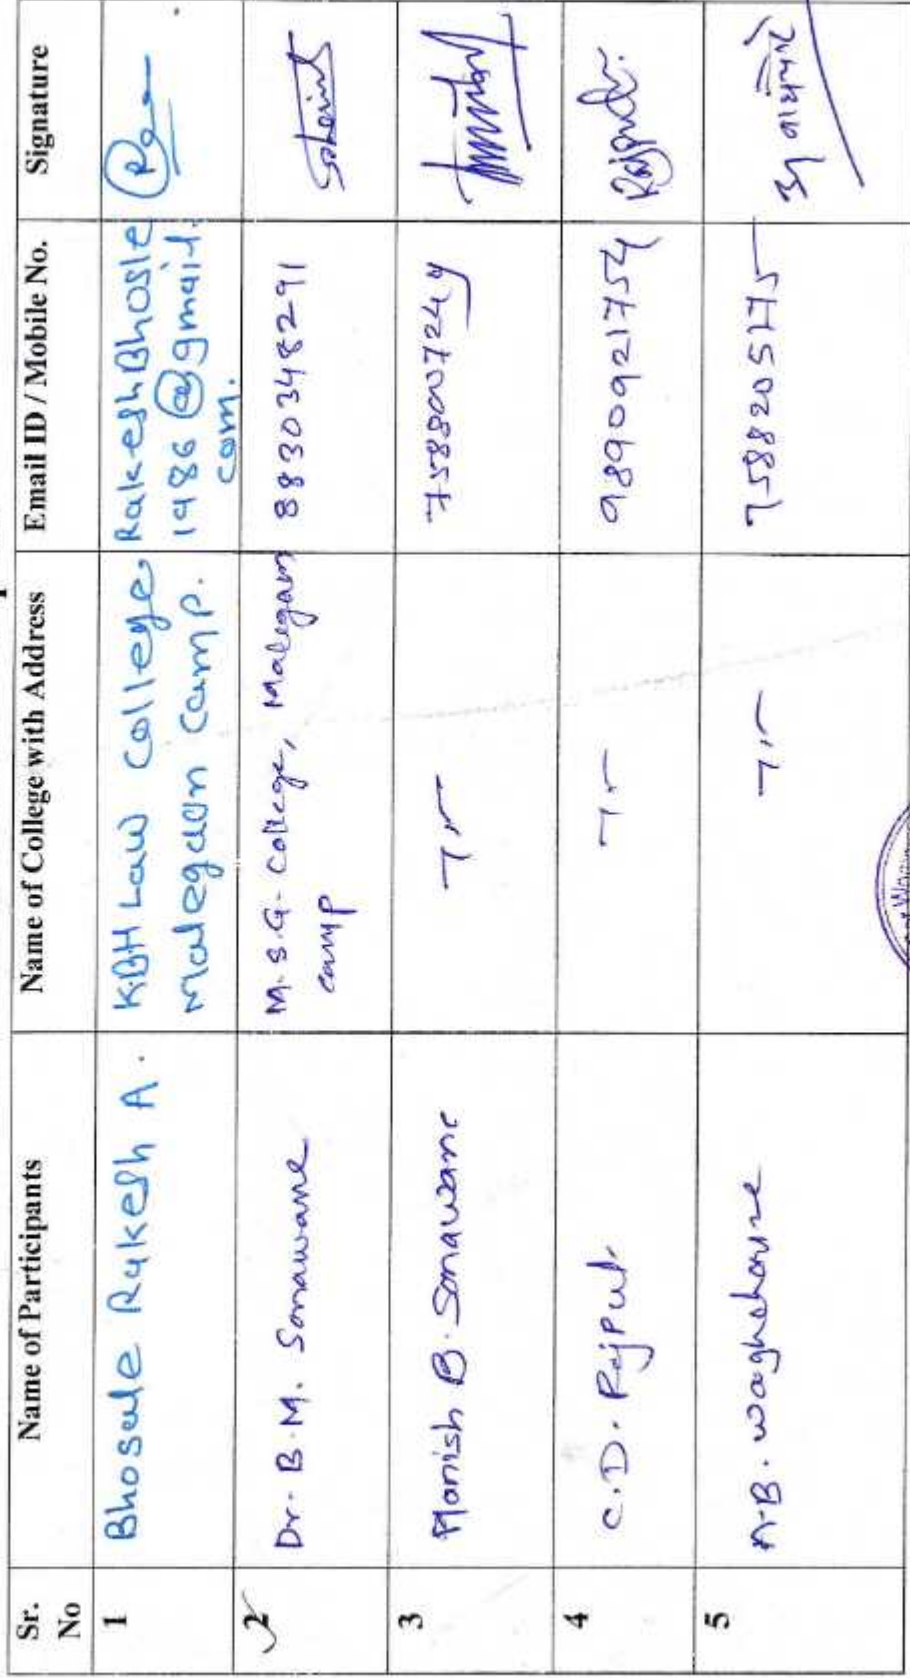 Sr. No
Name of Participants
Name of College with Address
Email ID / Mobile No.
Signature
1
Bhosale Rakesh A.
KBH Law College,
Malegaon Camp.
RakeshBhosle
1486@gmail.
com.
2
Dr. B. M. Sonawane
M.S.G. College, Malegaon
camp
8830348291
3
Manish B. Sonawane
4
C.D. Rajput
9890921754
5
7588205175